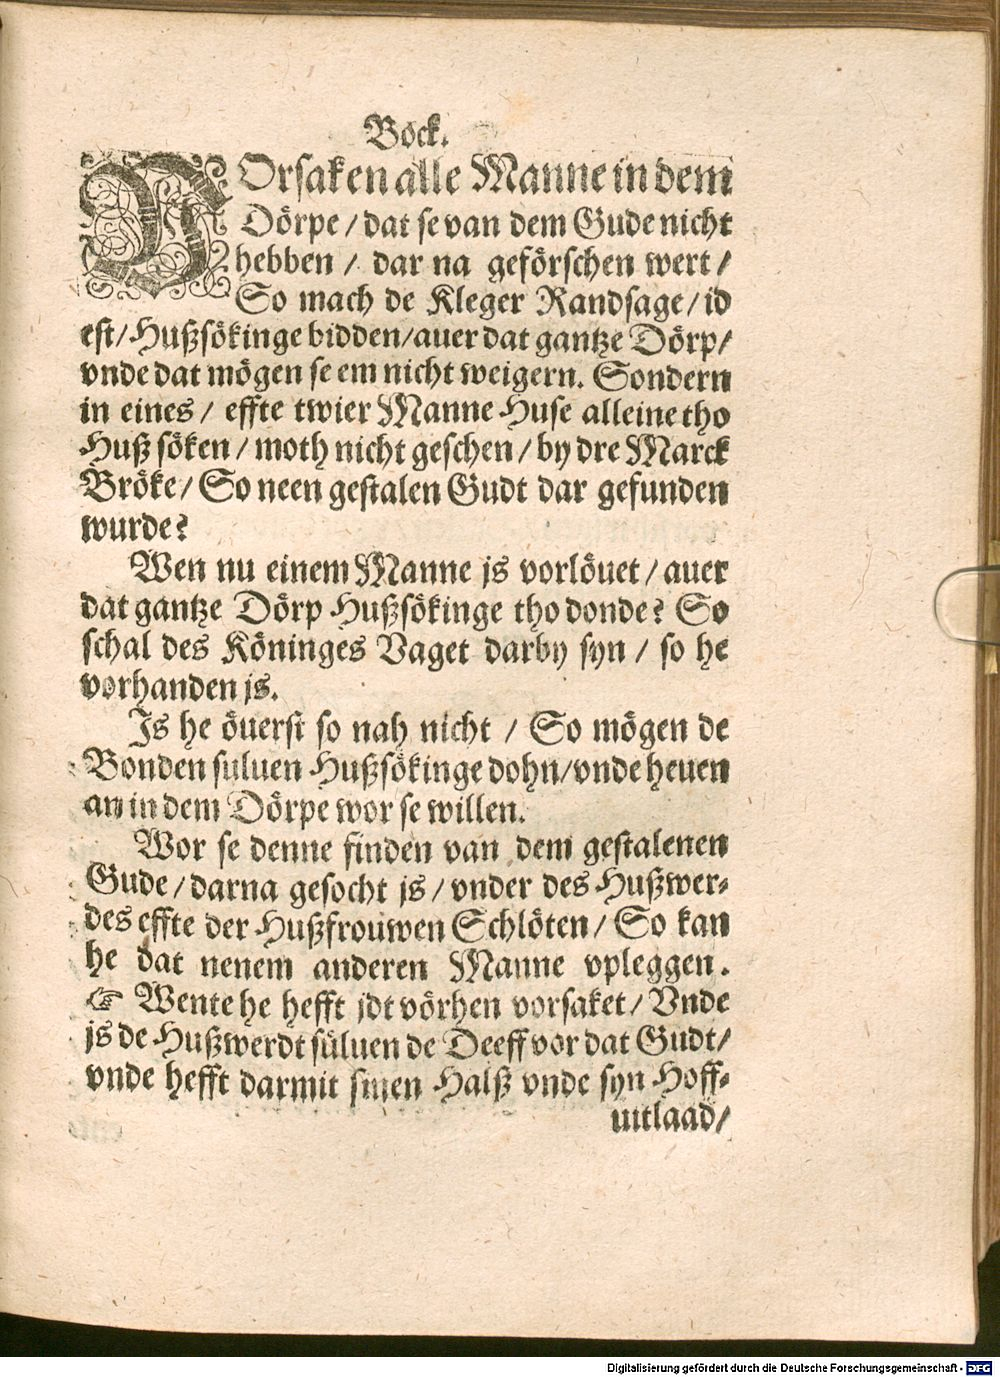 Böck.
VOrsaken alle Manne in dem
Dörpe / dat se van dem Gude nicht
hebben / dar na geförschen wert /
So mach de Kleger Randsage / id
est / Hußsökinge bidden / auer dat gantze Dörp /
vnde dat mögen se em nicht weigern. Sondern
in eines / effte twier Manne Huse alleine tho
Huß söken / moth nicht geschen / by dre Marck
Bröke / So neen gestalen Gudt dar gefunden
wurde?
Wen nu einem Manne js vorlöuet / auer
dat gantze Dörp Hußsökinge tho donde? So
schal des Köninges Vaget darby syn / so he
vorhanden js.
Is he öuerst so nah nicht / So mögen de
Bonden suluen Hußsökinge dohn / vnde heuen
an in dem Dörpe wor se willen.
Wor se denne finden van dem gestalenen
Gude / darna gesocht js / vnder des Hußwer-
des effte der Hußfrouwen Schlöten / So kan
he dat nenem anderen Manne vpleggen.
☞ Wente he hefft jdt vörhen vorsaket / Vnde
js de Hußwerdt süluen de Deeff vor dat Gudt /
vnde hefft darmit sinen Halß vnde syn Hoff-
uitlaad /
Digitalisierung gefördert durch die Deutsche Forschungsgemeinschaft - DFG